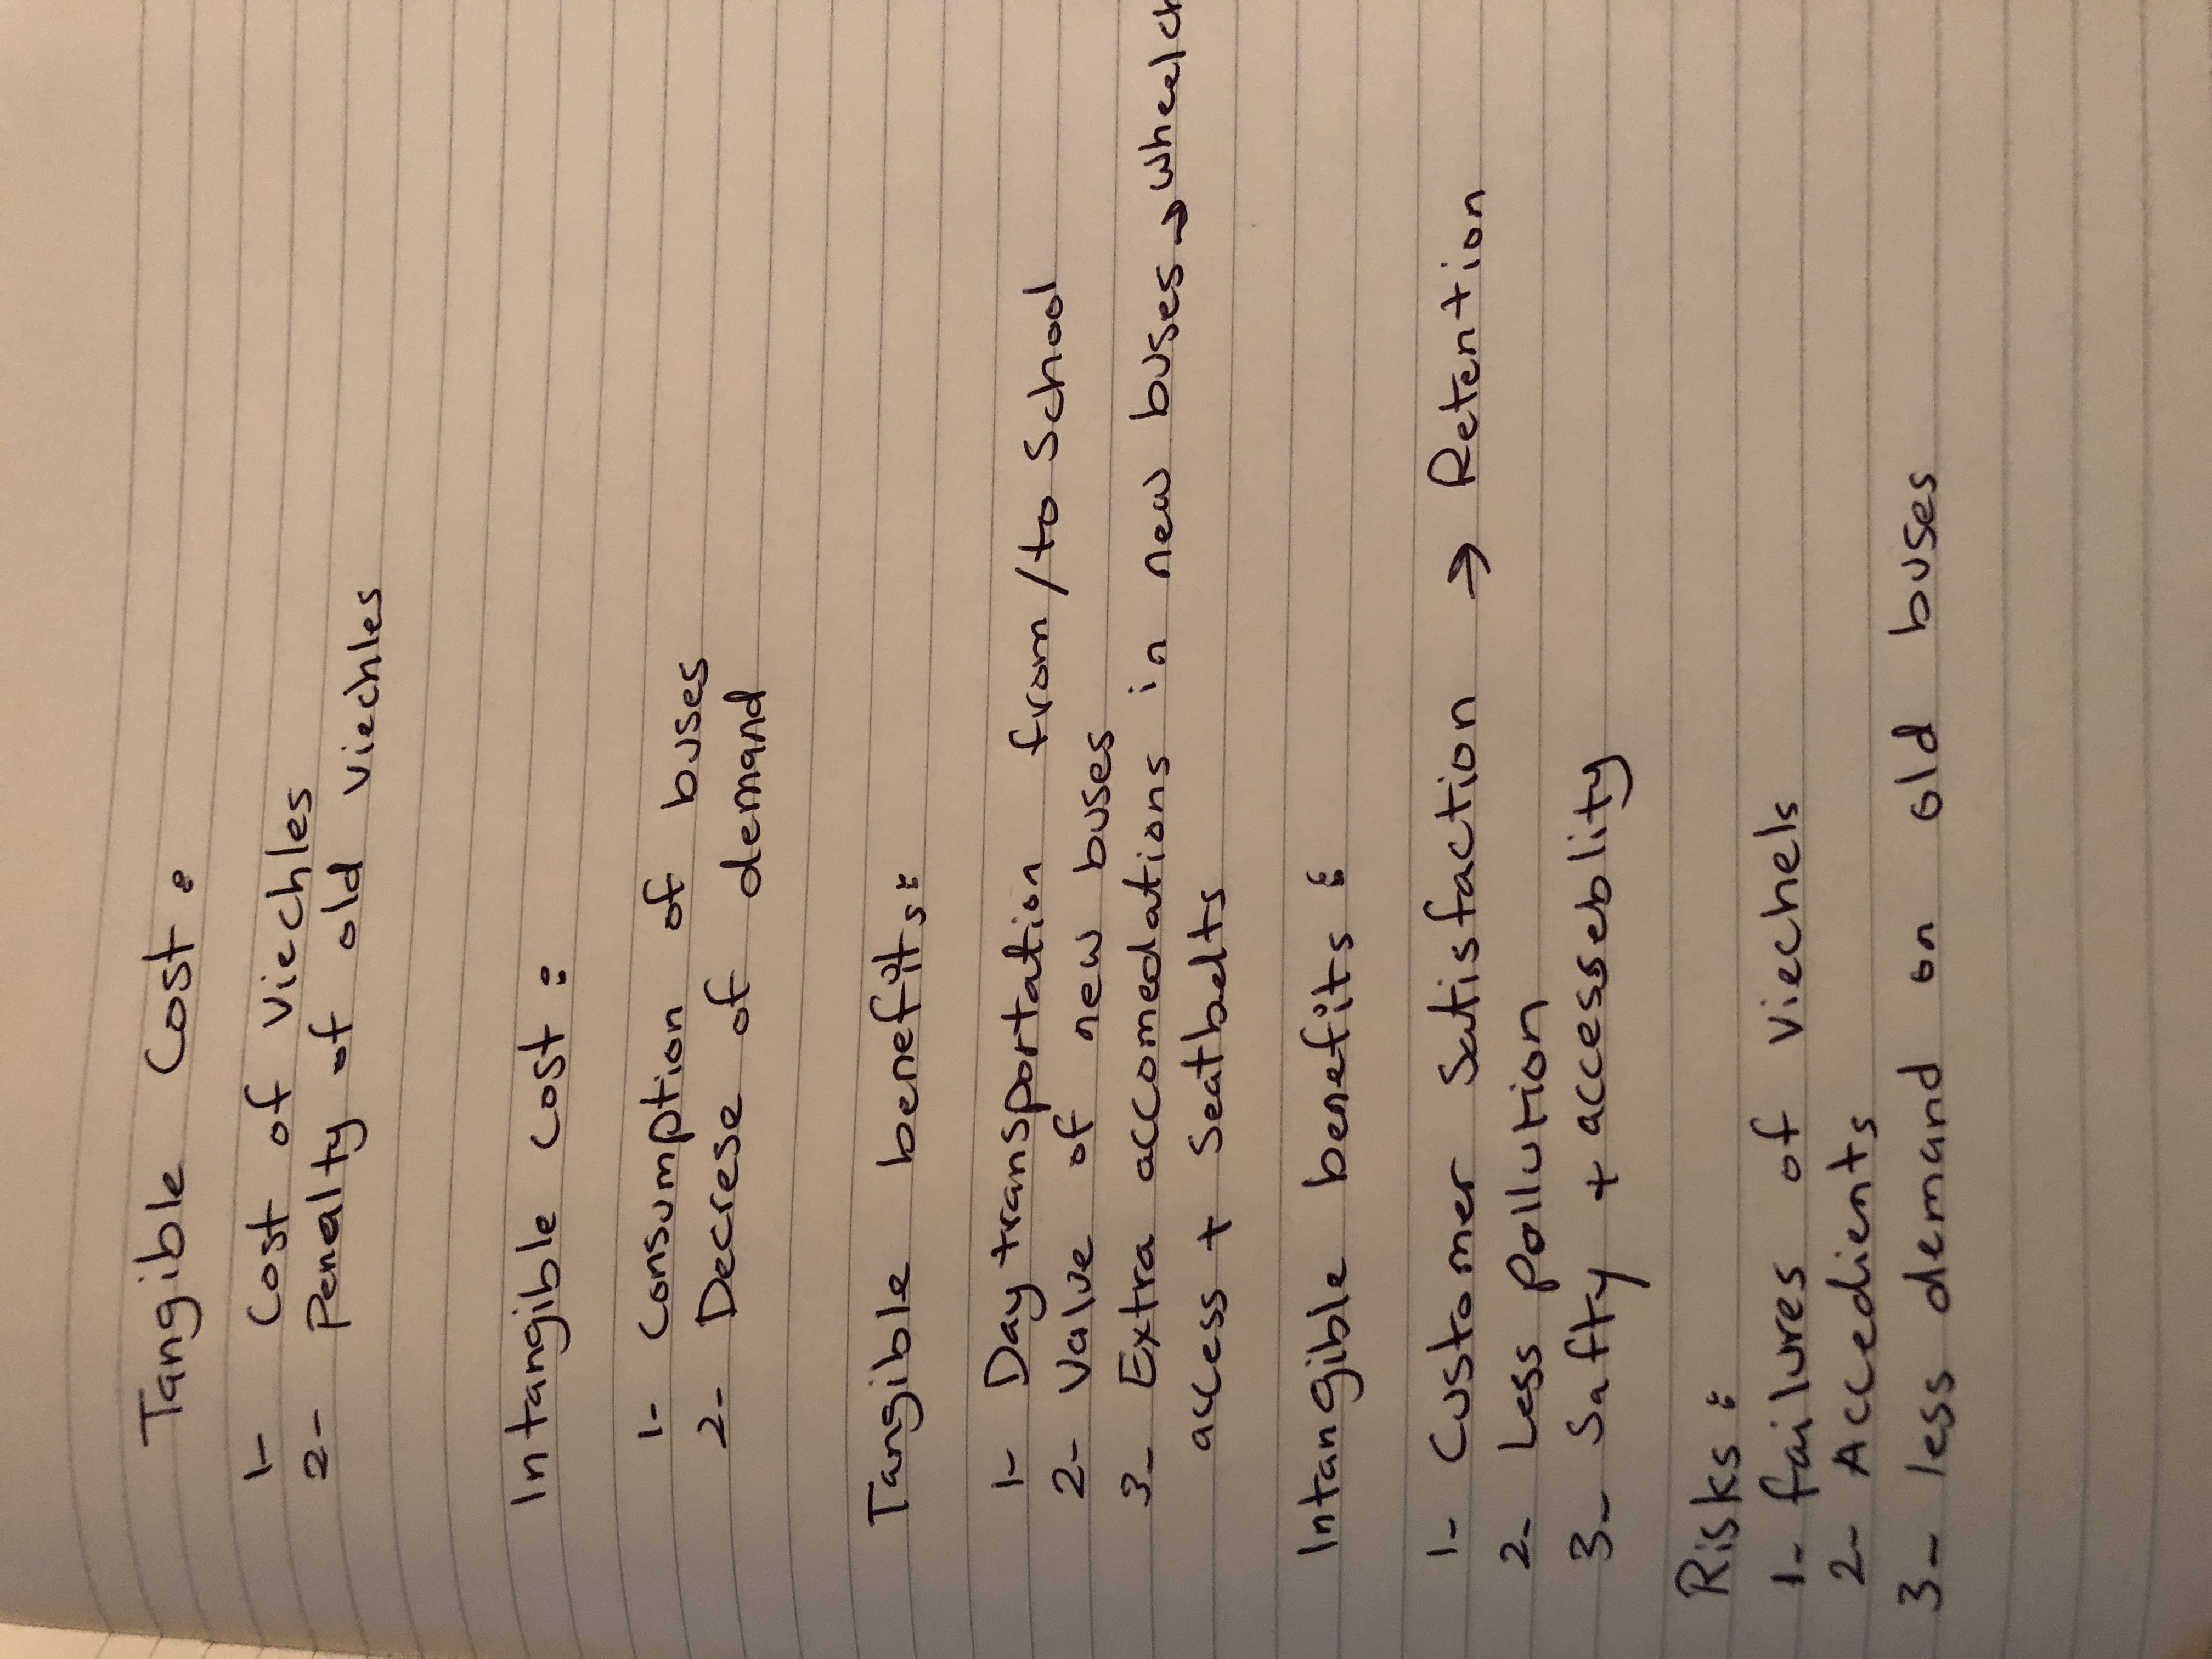 Tangible Cost :
1- Cost of Viechles
2- Penalty of old Viechles
Intangible Cost :
1- Consumption of buses
2- Decrese of demand
Tangible benefits:
1- Day transportation from/to School
2- Value of new buses
3- Extra accomedations in new buses → wheelch
access + Seatbelts
Intangible benefits :
1- Customer Satisfaction → Retention
2- Less pollution
3- Safty + accesseblity
Risks :
1- failures of Viechels
2- Accedients
3- less demand on old buses